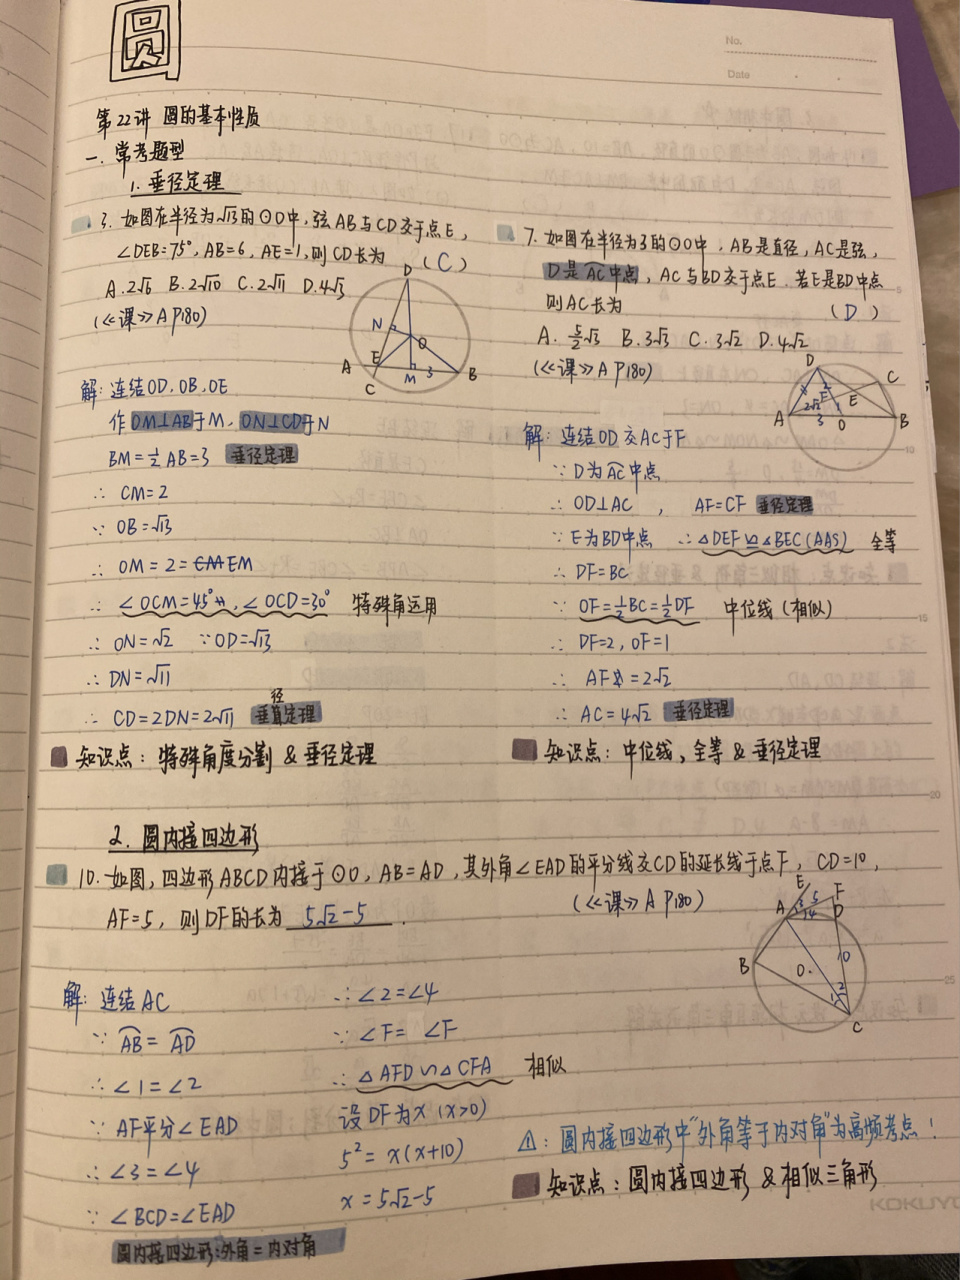 圆
No.
Date
第22讲 圆的基本性质
一. 常考题型
1. 垂径定理
3. 如图在半径为√13的⊙O中,弦AB与CD交于点E,
∠DEB=75°, AB=6, AE=1, 则CD长为 (C)
A.2√6 B.2√10 C.2√11 D.4√3
(《课》A P180)
D
N
O
A
E
C
M
3
B
解: 连结OD、OB、OE
作OM⊥AB于M、ON⊥CD于N
BM=½AB=3 垂径定理
∴ CM=2
∵ OB=√13
∴ OM=2=EM
∴ ∠OCM=45°, ∠OCD=30° 特殊角运用
∴ ON=√2 ∵OD=√13
∴ DN=√11
径
∴ CD=2DN=2√11 垂直定理
知识点: 特殊角度分割 & 垂径定理
7. 如图在半径为3的⊙O中, AB是直径, AC是弦,
D是AC中点, AC与BD交于点E. 若E是BD中点
则AC长为 (D)
A. 5/2√3 B.3√3 C.3√2 D.4√2
(《课》A P180)
D
C
F
E
A
2√2
1
3
O
B
解: 连结OD交AC于F
∵ D为AC中点
∴ OD⊥AC , AF=CF 垂径定理
∵ E为BD中点 ∴ △DEF≌△BEC(AAS) 全等
∴ DF=BC
∵ OF=½BC=½DF 中位线(相似)
∴ DF=2, OF=1
∴ AF=2√2
∴ AC=4√2 垂径定理
知识点: 中位线、全等 & 垂径定理
2. 圆内接四边形
10. 如图, 四边形ABCD内接于⊙O, AB=AD, 其外角∠EAD的平分线交CD的延长线于点F, CD=10,
AF=5, 则DF的长为 5√2-5 .
(《课》A P180)
E
A
3
5
4
F
D
B
O
10
1
2
C
解: 连结AC
∵ AB=AD
∴ ∠1=∠2
∵ AF平分∠EAD
∴ ∠3=∠4
∵ ∠BCD=∠EAD
圆内接四边形:外角=内对角
∴ ∠2=∠4
∵ ∠F=∠F
∴ △AFD∽△CFA 相似
设DF为x (x>0)
5²=x(x+10)
x=5√2-5
⚠: 圆内接四边形中"外角等于内对角"为高频考点!
知识点: 圆内接四边形 & 相似三角形
KOKUYO